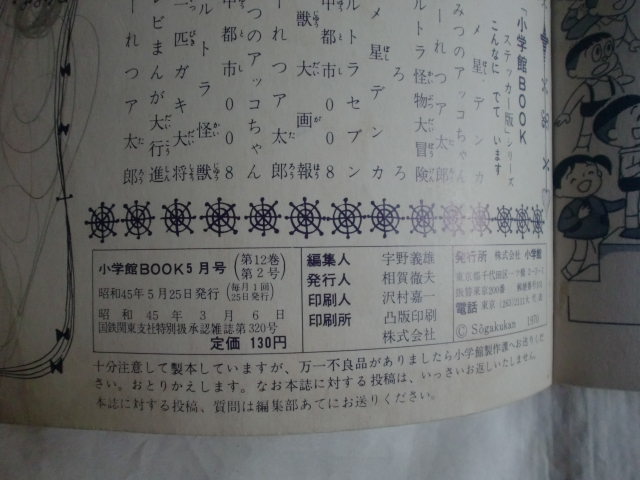 「小学館BOOK
ステッカー版」シリーズ
こんなに でて います
メ星デンカ
みつのアッコちゃん
ーれつア太郎
ルトラ怪物大冒険
メ星デンカ
ルトラセブン
中都市008
獣大画報
ーれつア太郎
つのアッコちゃん
中都市008
ルトラ怪獣
一匹ガキ大将
レビまんが大行進
ーれつア太郎
小学館BOOK5月号(第12巻 第2号)
昭和45年5月25日発行(毎月1回 25日発行)
昭和45年3月6日
国鉄関東支社特別扱承認雑誌第320号
定価 130円
編集人 宇野義雄
発行人 相賀徹夫
印刷人 沢村嘉一
印刷所 凸版印刷
株式会社
発行所 株式会社 小学館
東京都千代田区一ツ橋2-3-1
振替東京200番
電話 東京
© Sōgakukan 1970
十分注意して製本していますが、万一不良品がありましたら小学館製作課へお送りくだ
さい。おとりかえします。なお本誌に対する投稿は、いっさいお返しいたしません。
本誌に対する投稿、質問は編集部あてにお送りください。